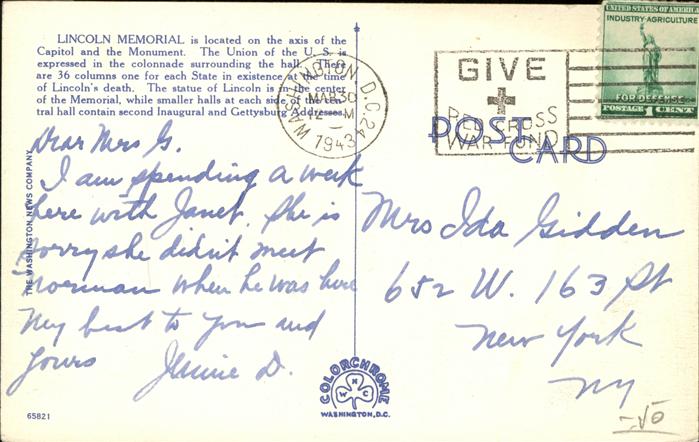 LINCOLN MEMORIAL is located on the axis of the
Capitol and the Monument. The Union of the U. S. is
expressed in the colonnade surrounding the hall. There
are 36 columns one for each State in existence at the time
of Lincoln's death. The statue of Lincoln is in the center
of the Memorial, while smaller halls at each side of the cen-
tral hall contain second Inaugural and Gettysburg Addresses.
WASHINGTON, D.C. 24
MAR 30
12 M
1943
GIVE
RED CROSS
WAR FUND
UNITED STATES OF AMERICA
INDUSTRY-AGRICULTURE
FOR DEFENSE
POSTAGE 1 CENT
POST
CARD
Dear Mrs G.
I am spending a week
here with Janet. She is
sorry she didn't meet
Norman when he was here
My best to you and
yours Jennie D.
Mrs Ida Gidden
652 W. 163 St
New York
NY
THE WASHINGTON NEWS COMPANY
COLORCHROME
N
W C
WASHINGTON, D.C.
65821